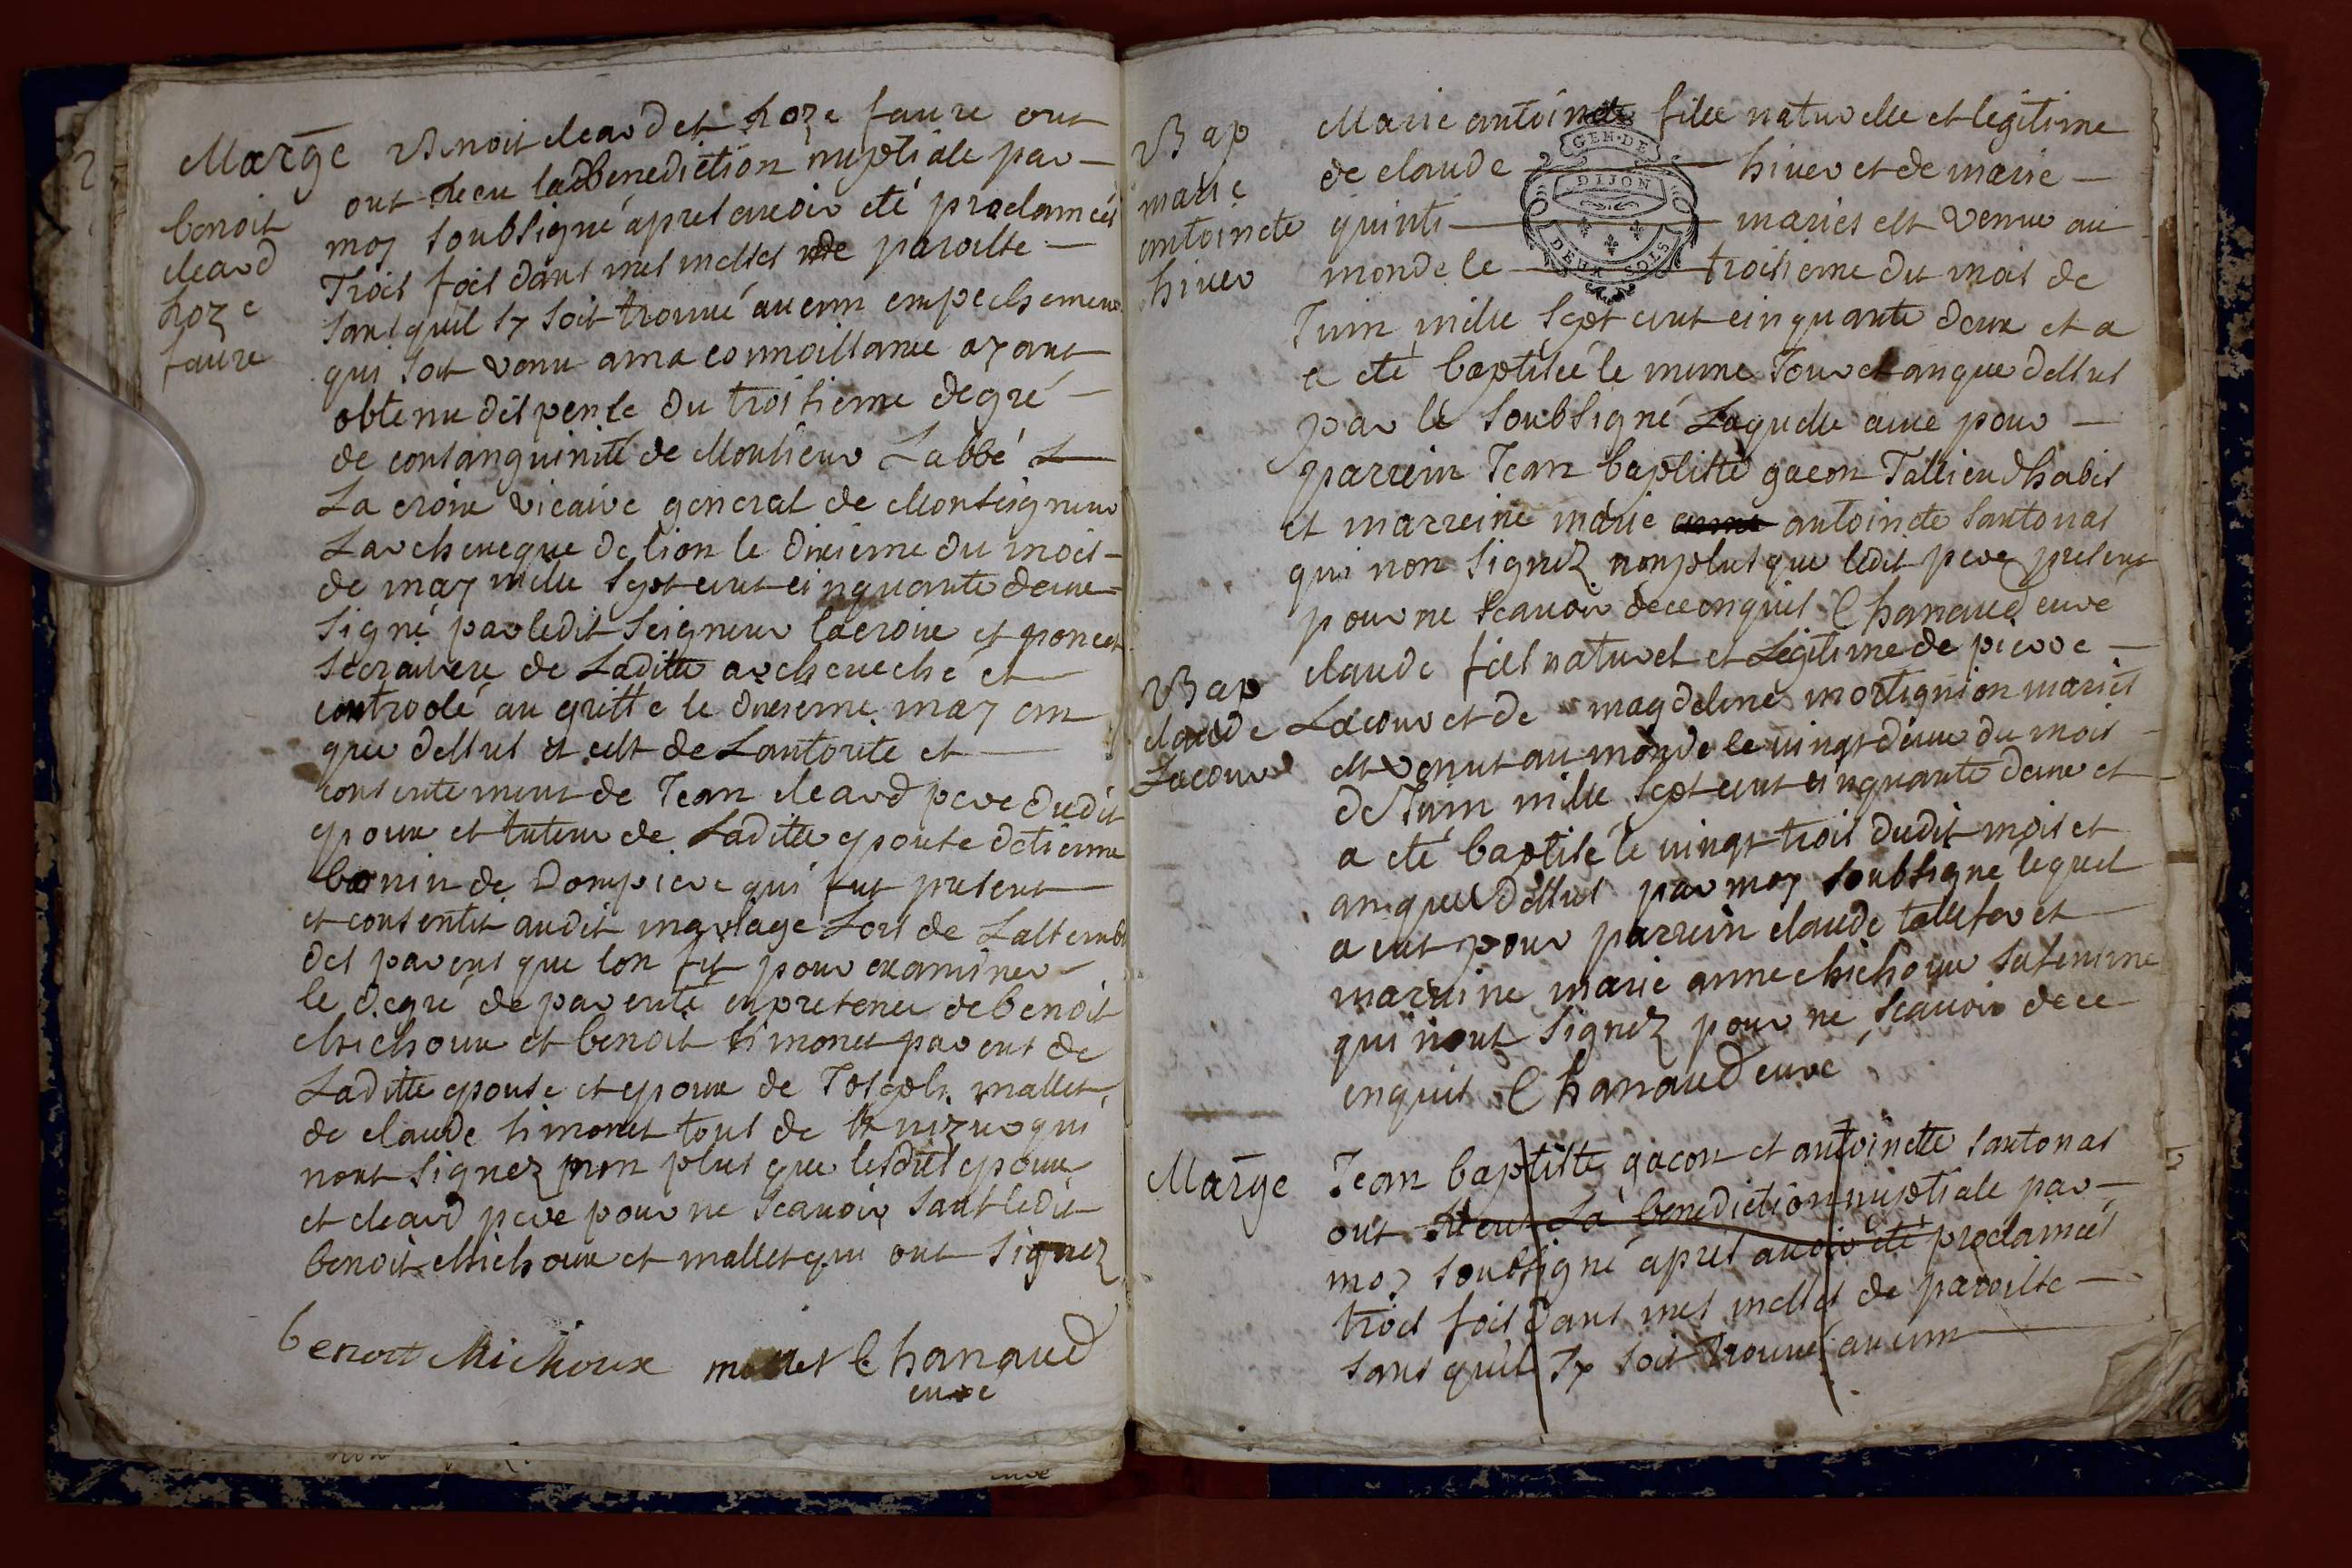 Marge Benoit cleard et hoze faure ont
ont Recu la Benediction nuptiale par
moy soubsigné apres avoir eté proclamées
Trois fois dans mes messes de paroisse
sans quil sy soit trouvé aucun empechement
qui soit venu a ma connoissance ayant
obtenu dispense du troisieme degré
de consanguinité de Monsieur Labbé
La croix vicaire general de Monseigneur
Larcheveque de lion le dixieme du mois
de may mille sept cent cinquante deux
signé par ledit seigneur lacroix et poncet
secraitere de Laditte archeveché et
controolé au greffe le dixieme may an
que dessus et cest de Lautorite et
consentement de Jean cleard pere dudit
epoux et tuteur de Laditte epouse detienne
bonin de Dompiere qui fut present
et consentit audit mariage Lors de Lassemblé
des parens que lon fit pour examiner
le degré de parenté en presence de benoit
Michoux et benoit simonet parens de
Laditte epouse et epoux de Joseph mallet
de claude simonet tous de qui
nont signez non plus que lesdits epoux
et cleard pere pour ne scavoir sauf ledit
benoit Michoux et mallet qui ont signez
benoit Michoux mallet Chanaud
curé
benoit
cleard
hoze
faure
Bap
marie
antoinete
hiver
Marie antoinete fille naturelle et legitime
de claude hiver et de marie
quinti mariés est venue au
monde le troisieme du mois de
Juin mille sept cent cinquante deux et a
a eté baptisée le meme Jour et an que dessus
par le soubsigné Laquelle a eue pour
parrein Jean baptiste gacon Tallieu dhabis
et marreine marie antoinete santonas
qui non signez non plus que ledit pere present
pour ne scavoir de ce enquis Chanaud curé
Bap
claude
Lacour
claude fils naturel et Legitime de pierre
Lacour et de magdelene mortignion mariés
est venut au monde le vingt deux du mois
de Juin mille sept cent cinquante deux et
a eté baptisé le vingt trois dudit mois et
an que dessus par moy soubsigné lequel
a eut pour parrein claude et
marreine marie anne chichoux sa femme
qui nont signez pour ne scavoir de ce
enquis Chanaud curé
Marge Jean baptiste gacon et antoinette santonas
ont Recut La benediction nuptiale par
moy soubsigné apres avoir eté proclamées
trois fois dans mes messes de paroisse
sans quil sy soit trouvé aucun
GEN. DE
DIJON
DEUX SOLS